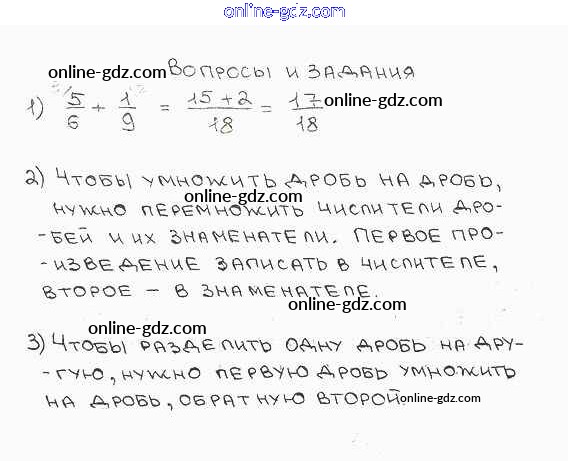 online-gdz.com
ВОПРОСЫ И ЗАДАНИЯ
online-gdz.com
1) 5/6 + 1/9 = 15+2/18 = 17/18
online-gdz.com
2) ЧТОБЫ УМНОЖИТЬ ДРОБЬ НА ДРОБЬ,
online-gdz.com
НУЖНО ПЕРЕМНОЖИТЬ ЧИСЛИТЕЛИ ДРО-
-БЕЙ И ИХ ЗНАМЕНАТЕЛИ. ПЕРВОЕ ПРО-
online-gdz.com
-ИЗВЕДЕНИЕ ЗАПИСАТЬ В ЧИСЛИТЕЛЕ,
ВТОРОЕ – В ЗНАМЕНАТЕЛЕ.
online-gdz.com
online-gdz.com
3) ЧТОБЫ РАЗДЕЛИТЬ ОДНУ ДРОБЬ НА ДРУ-
-ГУЮ, НУЖНО ПЕРВУЮ ДРОБЬ УМНОЖИТЬ
НА ДРОБЬ, ОБРАТНУЮ ВТОРОЙ.
online-gdz.com